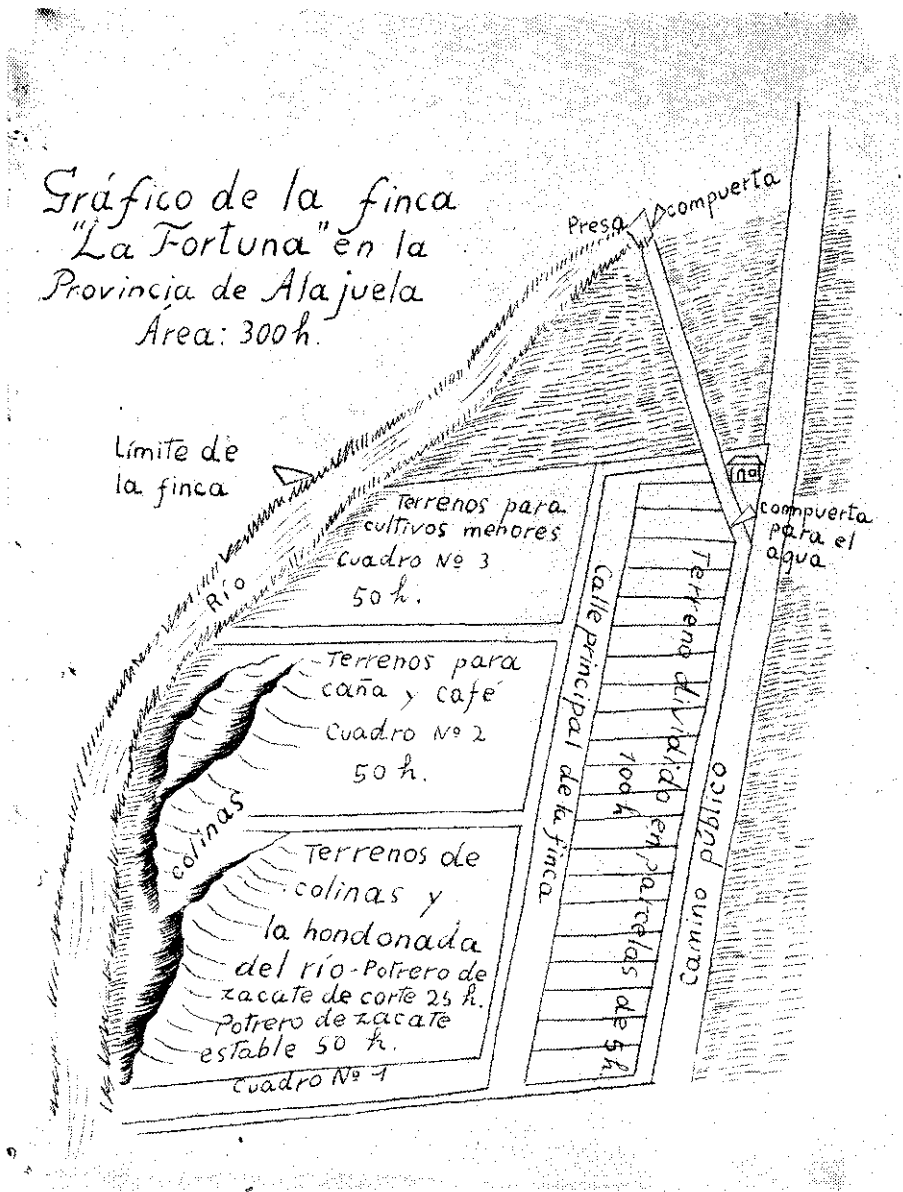 Gráfico de la finca
"La Fortuna" en la
Provincia de Alajuela
Área: 300 h.
Presa
compuerta
Límite de
la finca
Río
Terrenos para
cultivos menores
Cuadro Nº 3
50 h.
compuerta
para el
agua
Terrenos para
caña y café
Cuadro Nº 2
50 h.
colinas
Terrenos de
colinas y
la hondonada
del río-Potrero de
zacate de corte 25 h.
Potrero de zacate
estable 50 h.
Cuadro Nº 1
Calle principal de la finca
Terreno dividido en parcelas de 5 h.
100 h
camino público